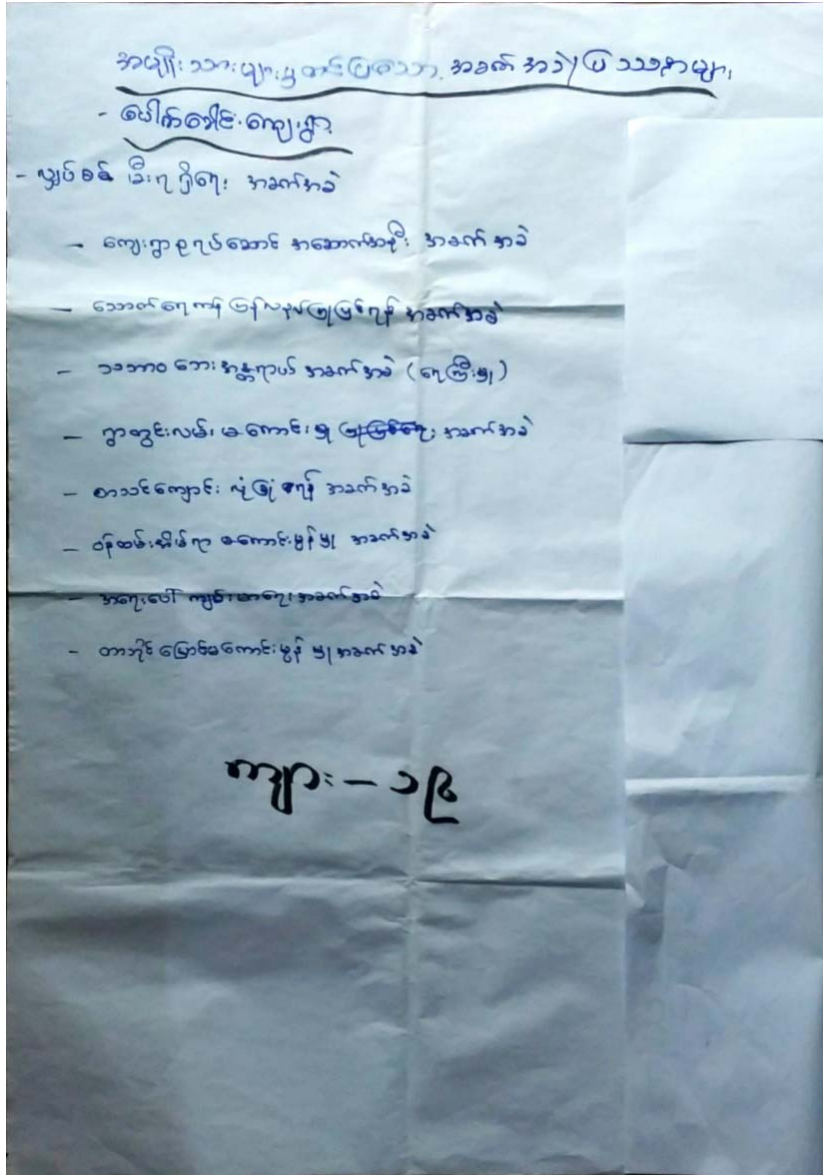 အမျိုးသားများမှတင်ပြသော အခက်အခဲပြဿနာများ
- ပေါက်ခေါင်းကျေးရွာ
- လျှပ်စစ် မီးရရှိရေး အခက်အခဲ
- ကျေးရွာစုရပ်ဆောင် အဆောက်အဦး အခက်အခဲ
- သောက်ရေကန် ပြန်လည်ပြုပြင်ရန် အခက်အခဲ
- သဘာဝဘေးအန္တရာယ် အခက်အခဲ (ရေကြီးမှု)
- ရွာတွင်းလမ်း မကောင်းမှု အခက်အခဲ
- စာသင်ကျောင်း လုံခြုံရန် အခက်အခဲ
- ဝန်ထမ်းအိမ်ရာ မကောင်းမွန်မှု အခက်အခဲ
- အရေးပေါ် ကျန်းမာရေးအခက်အခဲ
- တာဘိုင် မြောင်းမကောင်းမွန်မှု အခက်အခဲ
ကျား - ၁၉